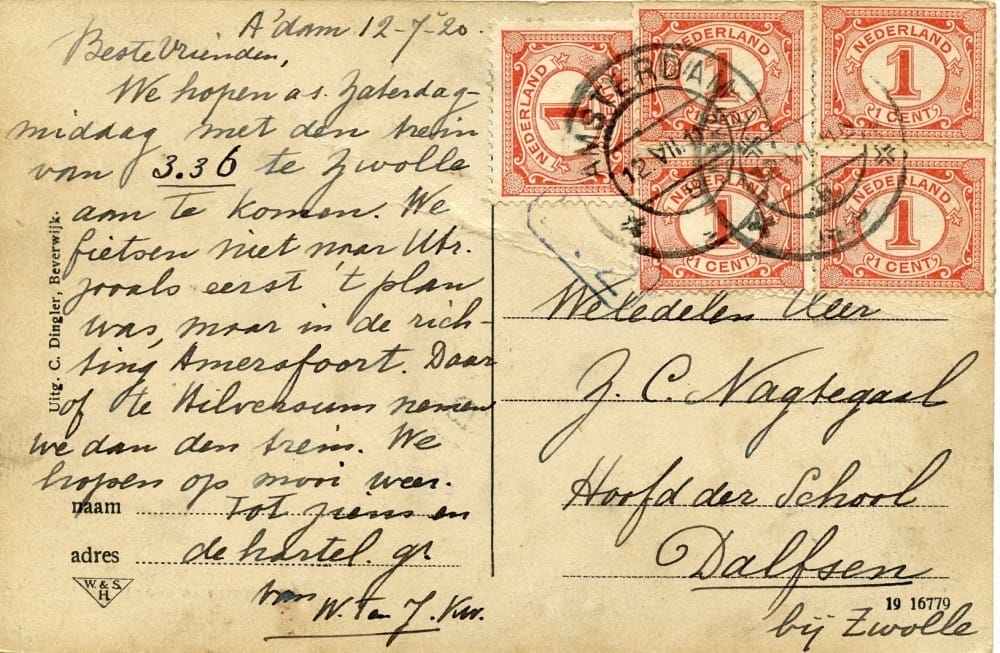 A'dam 12-7-20.
Beste Vrienden,
We hopen a s. Zaterdag-
middag met den trein
van 3.36 te Zwolle
aan te komen. We
fietsen niet naar Utr.
zooals eerst 't plan
was, maar in de rich-
ting Amersfoort. Daar
of te Hilversum nemen
we dan den trein. We
hopen op mooi weer.
naam Tot ziens en
adres de hartel. gr.
van
W. en J. Kw.
W. & S.
H.
Uitg. C. Dingler, Beverwijk.
NEDERLAND
1
1 CENT
NEDERLAND
1
1 CENT
NEDERLAND
1
1 CENT
NEDERLAND
1
1 CENT
NEDERLAND
1
1 CENT
AMSTERDAM
12 VII
Weledelen Heer
Z. C. Nagtegaal
Hoofd der School
Dalfsen
19 16779
bij Zwolle